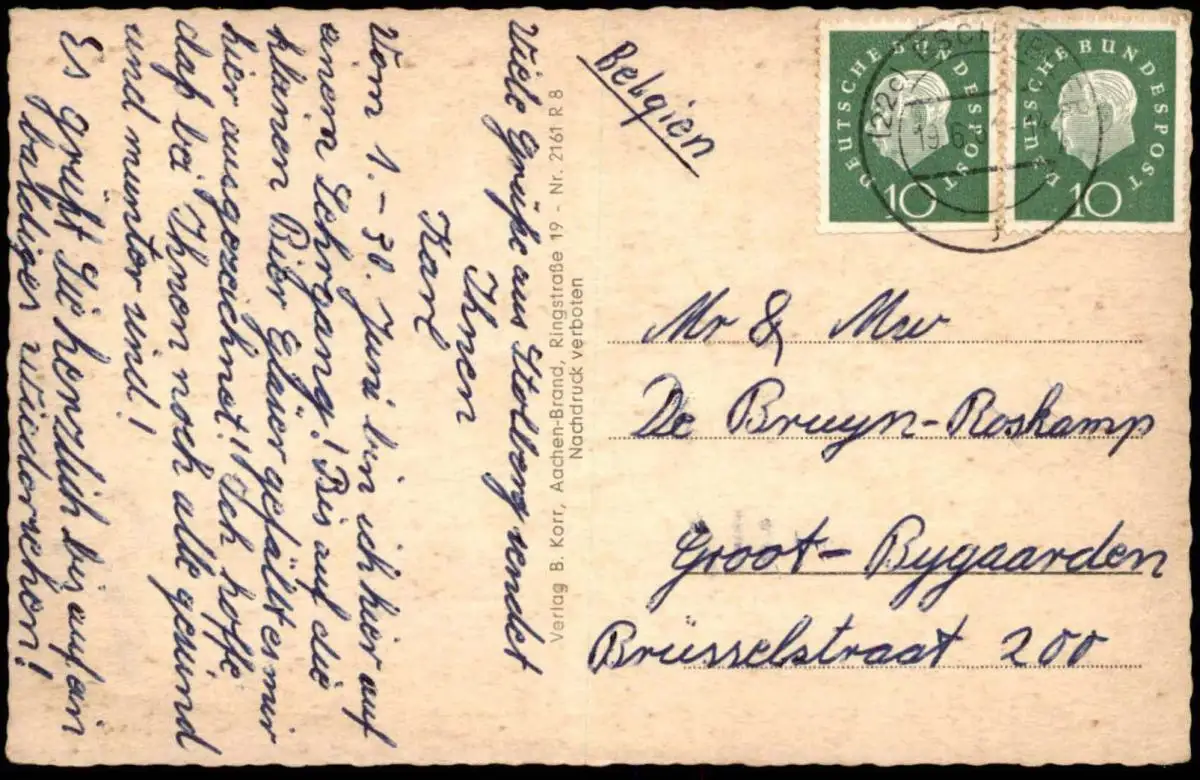 Viele Grüße aus Stolberg sendet
Ihnen
Karl
Vom 1. - 30. Juni bin ich hier auf
einem Lehrgang! Bis auf die
kleinen Bier Gläser gefällt es mir
hier ausgezeichnet!! Ich hoffe
daß bei Ihnen noch alle gesund
und munter sind!
Es grüßt Sie herzlich bis auf ein
baldiges Wiedersehen!
Verlag B. Korr, Aachen-Brand, Ringstraße 19 - Nr. 2161 R 8
Nachdruck verboten
Belgien
DEUTSCHE BUNDESPOST
10
DEUTSCHE BUNDESPOST
10
(22c)
19.6.
Mr & Mw
De Bruyn-Roskamp
Groot-Bygaarden
Brüsselstraat 200